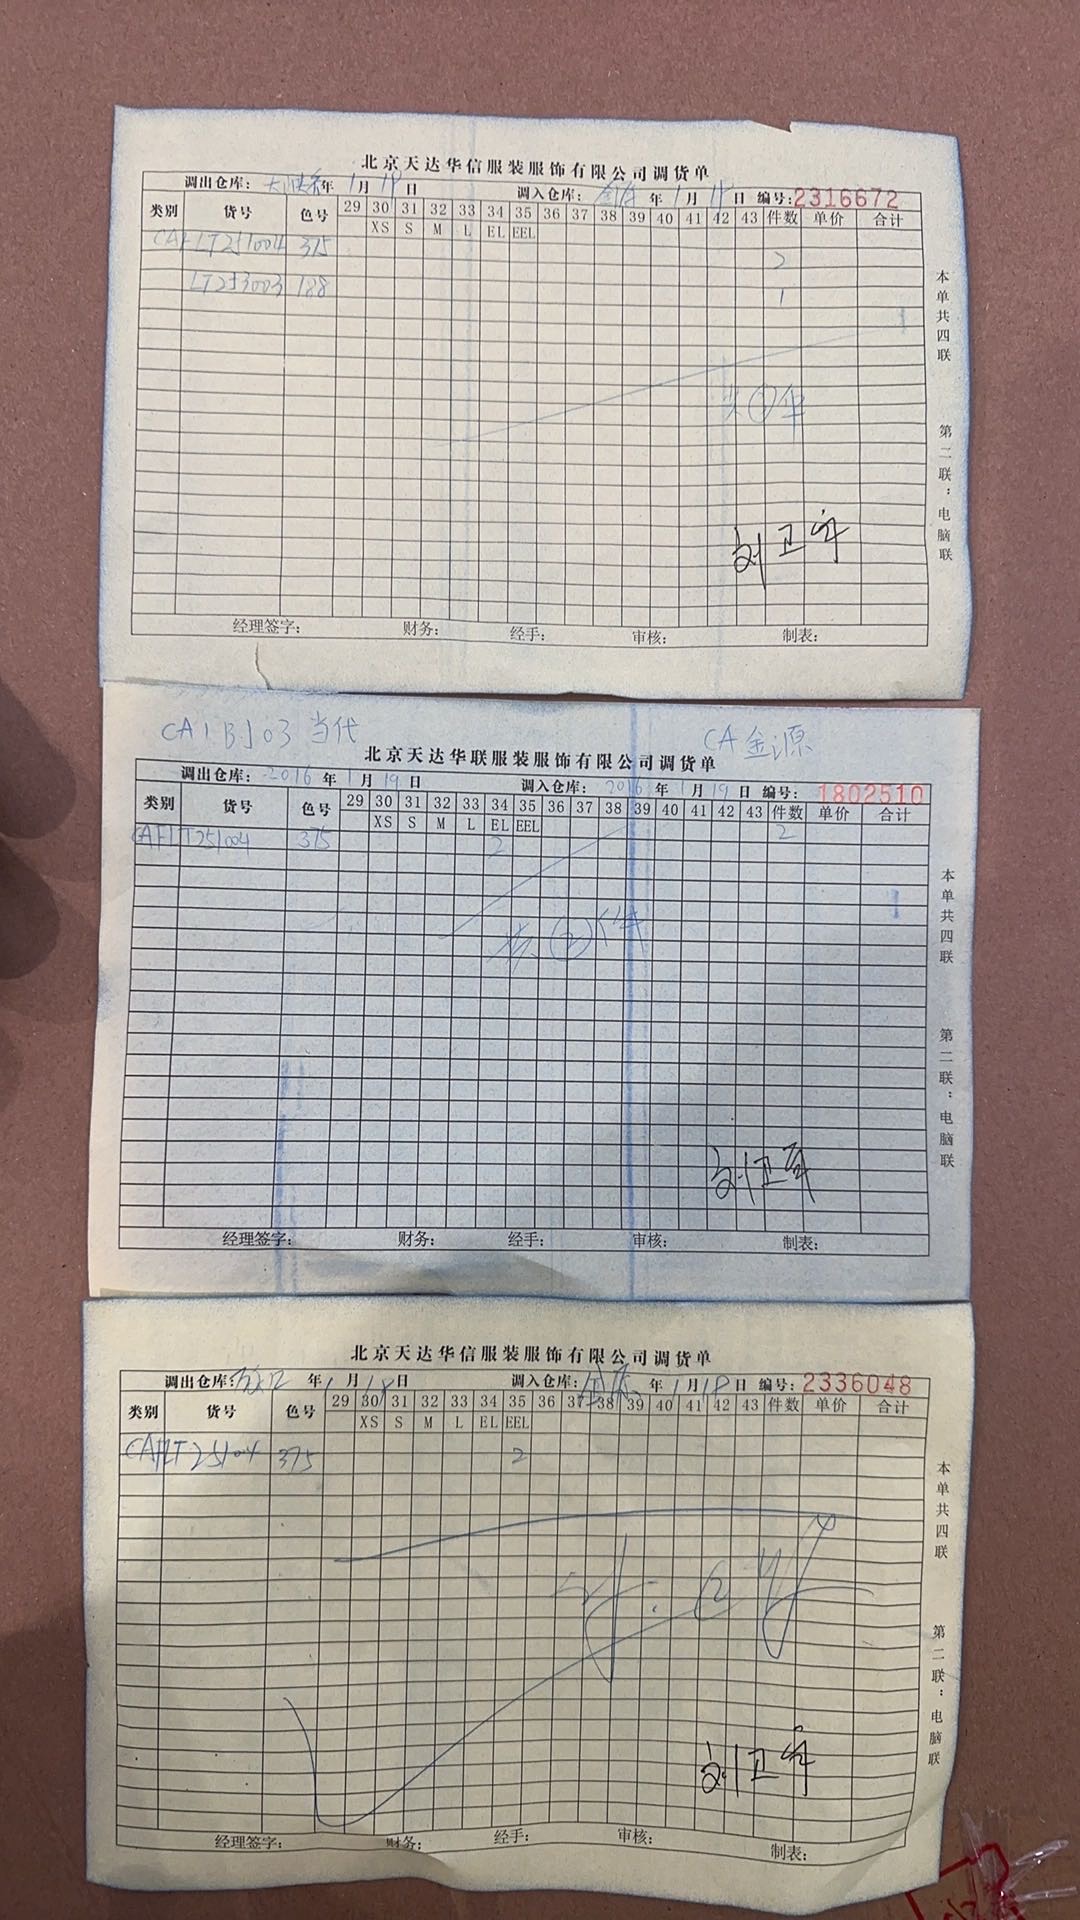 北京天达华信服装服饰有限公司调货单
调出仓库: 年 1月19日 调入仓库: 年 1月 日 编号:2316672
类别 货号 色号 29 30 31 32 33 34 35 36 37 38 39 40 41 42 43 件数 单价 合计
XS S M L EL EEL
CAFLT251004 375 2
LT253003 188 1
共 件
本单共四联
第二联:电脑联
经理签字: 财务: 经手: 审核: 制表:
CA1BJ03 当代 CA金源
北京天达华联服装服饰有限公司调货单
调出仓库: 2016年1月19日 调入仓库: 2016年1月19日 编号: 1802510
类别 货号 色号 29 30 31 32 33 34 35 36 37 38 39 40 41 42 43 件数 单价 合计
XS S M L EL EEL
CAFLT251004 375 2 2
共②件
本单共四联
第二联:电脑联
经理签字: 财务: 经手: 审核: 制表:
北京天达华信服装服饰有限公司调货单
调出仓库: 年1月18日 调入仓库: 年1月18日 编号:2336048
类别 货号 色号 29 30 31 32 33 34 35 36 37 38 39 40 41 42 43 件数 单价 合计
XS S M L EL EEL
CAFLT251004 375 2
本单共四联
第二联:电脑联
经理签字: 财务: 经手: 审核: 制表: